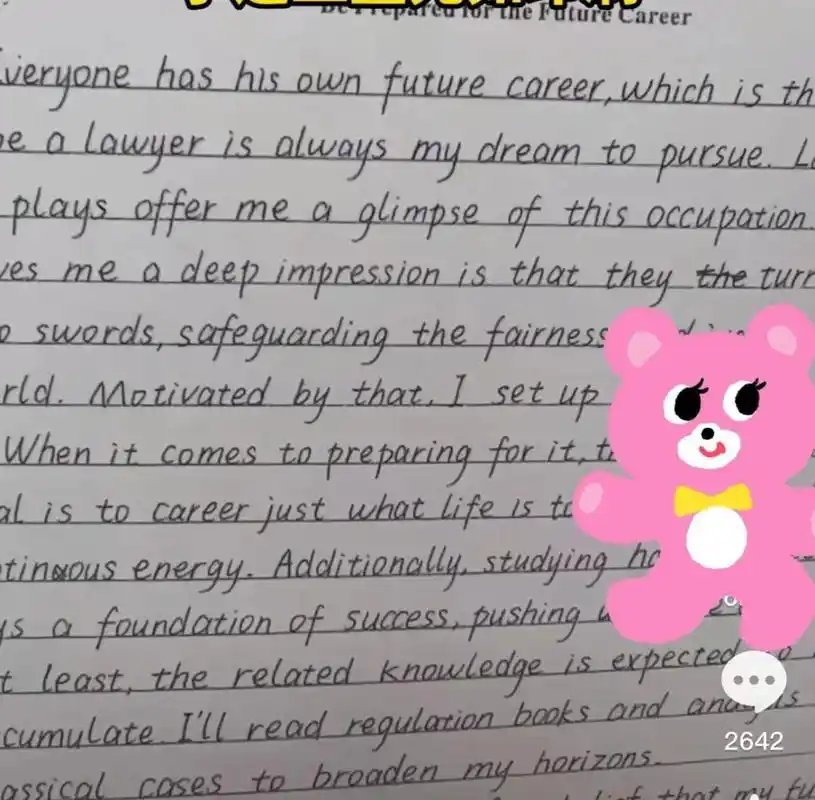 Be Prepared for the Future Career
veryone has his own future career, which is th
e a lawyer is always my dream to pursue. L
plays offer me a glimpse of this occupation.
es me a deep impression is that they the turn
o swords, safeguarding the fairness
rld. Motivated by that, I set up
When it comes to preparing for it, t
al is to career just what life is to
tinuous energy. Additionally, studying ha
ys a foundation of success, pushing u
t least, the related knowledge is expected to
cumulate I'll read regulation books and analysis
assical cases to broaden my horizons.
that my fu
2642